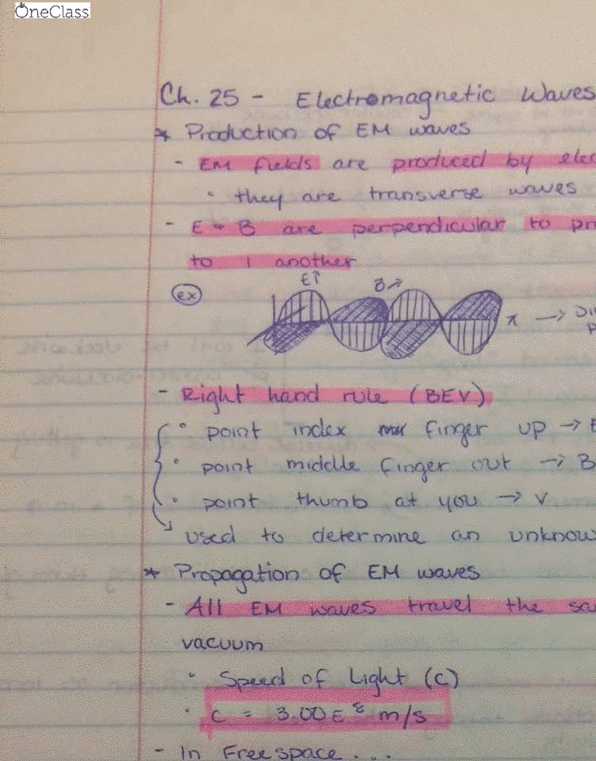 OneClass
Ch. 25 - Electromagnetic Waves
* Production of EM waves
- EM fields are produced by elec
• they are transverse waves
- E + B are perpendicular to pr
to 1 another
ex E↑ B↗ x → Dir
- Right hand rule (BEV)
• point index finger up → E
• point middle finger out → B
• point thumb at you → V
↳ used to determine an unknow
* Propagation of EM waves
- All EM waves travel the sa
vacuum
• Speed of Light (c)
• C = 3.00 E⁸ m/s
- In Free space...